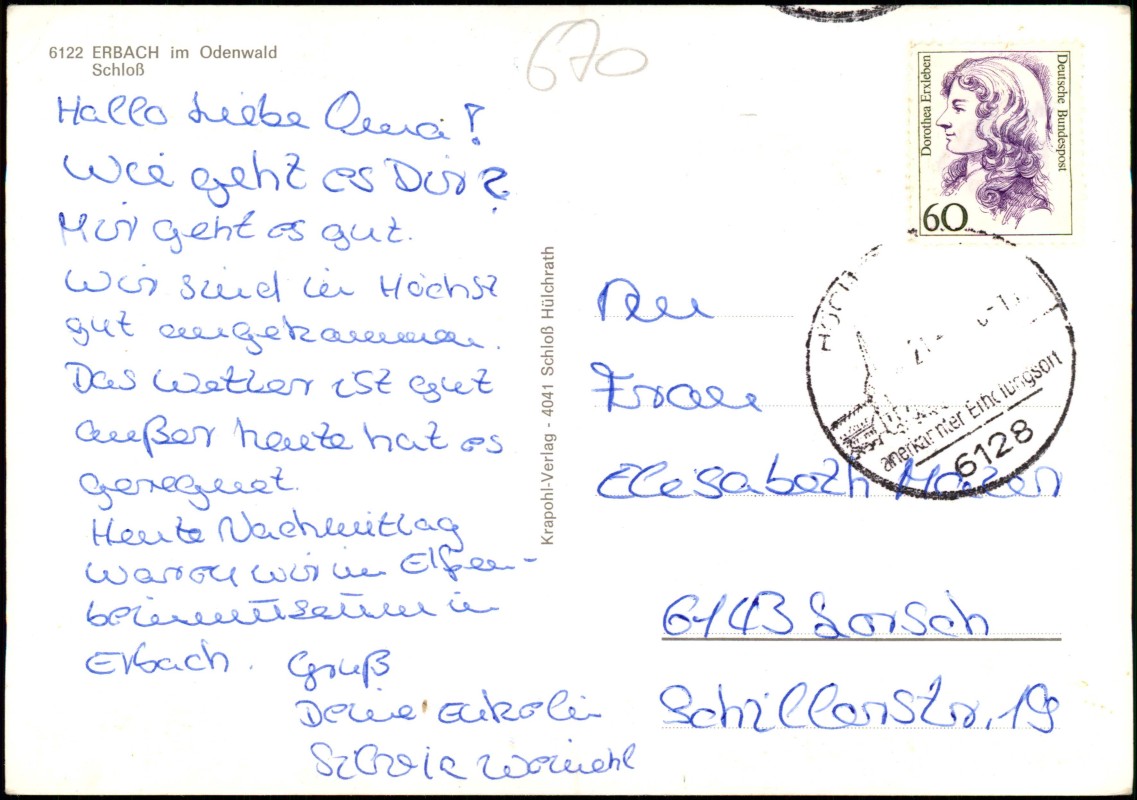 6122 ERBACH im Odenwald
Schloß
670
Hallo Liebe Oma!
Wie geht es Dir?
Mir geht es gut.
Wir sind in Höchst
gut angekommen.
Das Wetter ist gut
außer heute hat es
geregnet.
Heute Nachmittag
waren wir im Elfen-
beinmuseum in
Erbach. Gruß
Deine Enkelin
Silvia
Krapohl-Verlag - 4041 Schloß Hülchrath
Dorothea Erxleben
Deutsche Bundespost
60
anerkannter Erholungsort
6128
An
Frau
Elisabeth
6143 Lorsch
Schillerstr. 19